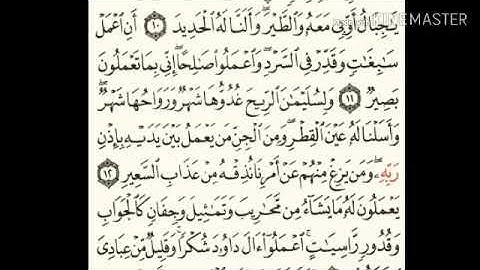 KINEMASTER
يَـٰجِبَالُ أَوِّبِى مَعَهُۥ وَٱلطَّيْرَ ۖ وَأَلَنَّا لَهُ ٱلْحَدِيدَ ١٠ أَنِ ٱعْمَلْ
سَـٰبِغَـٰتٍ وَقَدِّرْ فِى ٱلسَّرْدِ ۖ وَٱعْمَلُوا۟ صَـٰلِحًا ۖ إِنِّى بِمَا تَعْمَلُونَ
بَصِيرٌ ١١ وَلِسُلَيْمَـٰنَ ٱلرِّيحَ غُدُوُّهَا شَهْرٌ وَرَوَاحُهَا شَهْرٌ ۖ
وَأَسَلْنَا لَهُۥ عَيْنَ ٱلْقِطْرِ ۖ وَمِنَ ٱلْجِنِّ مَن يَعْمَلُ بَيْنَ يَدَيْهِ بِإِذْنِ
رَبِّهِۦ ۖ وَمَن يَزِغْ مِنْهُمْ عَنْ أَمْرِنَا نُذِقْهُ مِنْ عَذَابِ ٱلسَّعِيرِ ١٢
يَعْمَلُونَ لَهُۥ مَا يَشَآءُ مِن مَّحَـٰرِيبَ وَتَمَـٰثِيلَ وَجِفَانٍ كَٱلْجَوَابِ
وَقُدُورٍ رَّاسِيَـٰتٍ ۚ ٱعْمَلُوٓا۟ ءَالَ دَاوُۥدَ شُكْرًا ۚ وَقَلِيلٌ مِّنْ عِبَادِىَ